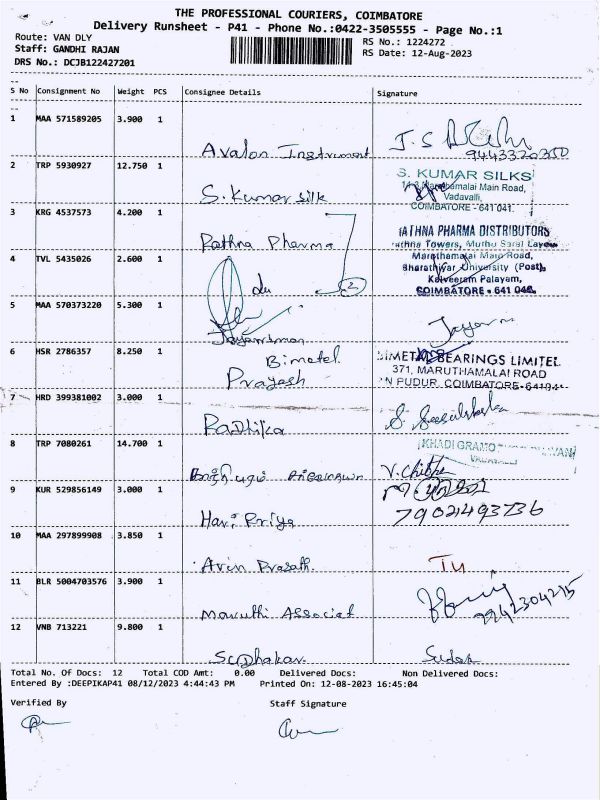 THE PROFESSIONAL COURIERS, COIMBATORE
Delivery Runsheet - P41 - Phone No.:0422-3505555 - Page No.:1
Route: VAN DLY
Staff: GANDHI RAJAN
DRS No.: DCJB122427201
RS No.: 1224272
RS Date: 12-Aug-2023
S No Consignment No Weight PCS Consignee Details Signature
1 MAA 571589205 3.900 1
Avalon Instrument
9443320350
2 TRP 5930927 12.750 1
S. Kumar silk
S. KUMAR SILKS
Main Road,
Vadavalli,
COIMBATORE - 641 041.
3 KRG 4537573 4.200 1
Rathna Pharma
PHARMA DISTRIBUTORS
Towers, Muthu
4 TVL 5435026 2.600 1
Maruthamalai Main Road,
Bharathiyar University (Post),
Kalveeram Palayam,
COIMBATORE - 641 046.
5 MAA 570373220 5.300 1
Jayaraman
6 HSR 2786357 8.250 1
Bimetel
Prayash
BEARINGS LIMITED
371, MARUTHAMALAI ROAD
PUDUR, COIMBATORE
7 HRD 399381002 3.000 1
Radhika
8 TRP 7080261 14.700 1
KHADI GRAMO
VADAVALLI
V. Chithra
9 KUR 529856149 3.000 1
Hari Priya
79021493736
10 MAA 297899908 3.850 1
Arin Prasath.
11 BLR 5004703576 3.900 1
Maruthi Associat
9942304215
12 VNB 713221 9.800 1
Sudhakar
Total No. Of Docs: 12 Total COD Amt: 0.00 Delivered Docs: Non Delivered Docs:
Entered By :DEEPIKAP41 08/12/2023 4:44:43 PM Printed On: 12-08-2023 16:45:04
Verified By Staff Signature